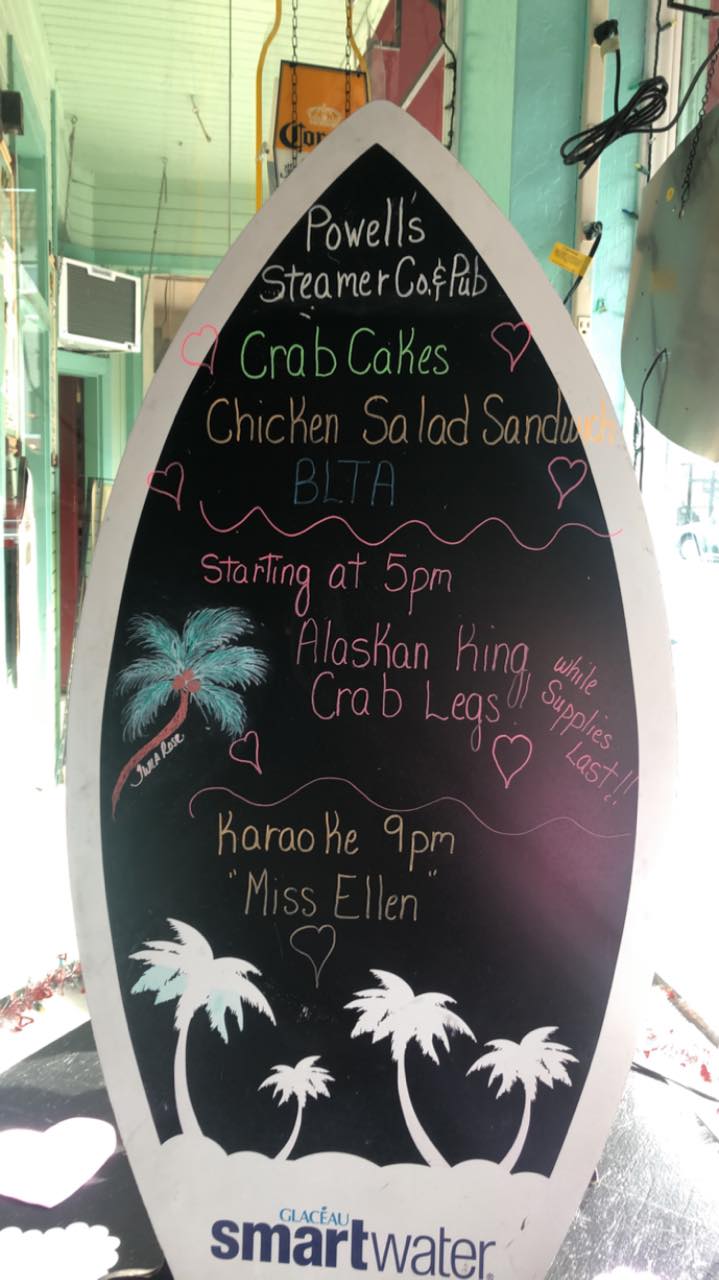 Cor
Powell's
Steamer Co. & Pub
Crab Cakes
Chicken Salad Sandwich
BLTA
Starting at 5pm
Alaskan King
Crab Legs!!
while
Supplies
Last!!
Karaoke 9pm
"Miss Ellen"
GLACÉAU
smartwater